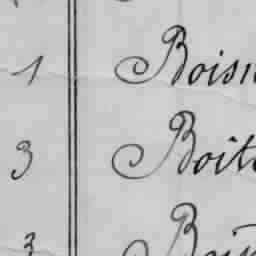 1 Boisn
3 Boite
3